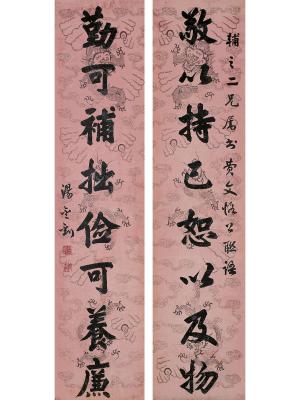 輔之二兄屬書費文恪公聯語
敬以持己恕以及物
勤可補拙儉可養廉
湯金釗